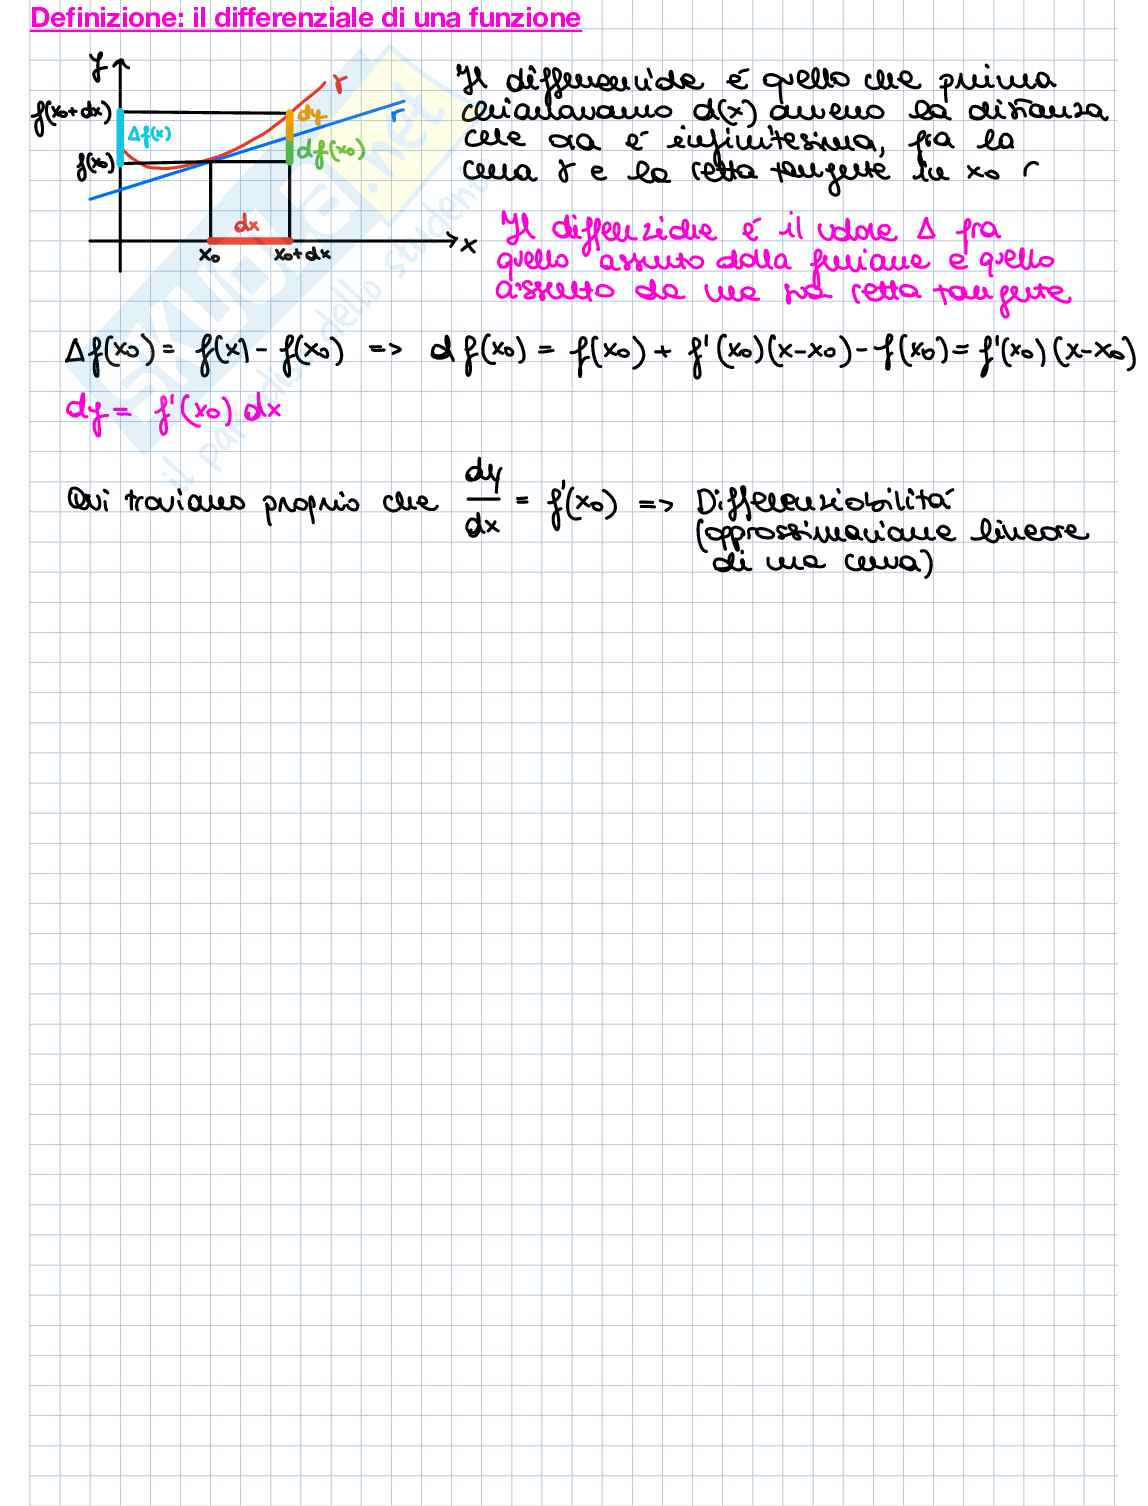 Definizione: il differenziale di una funzione
y
f(x₀+dx)
Δf(x)
f(x₀)
γ
r
dy
df(x₀)
dx
x₀
x₀+dx
x
Il differenziale é quello che prima
chiamavamo d(x) ovvero la distanza
che ora é infinitesima, fra la
curva γ e la retta tangente in x₀ r
Il differenziale é il valore Δ fra
quello assunto dalla funzione e quello
assunto da una sua retta tangente
Δf(x₀) = f(x) - f(x₀) => df(x₀) = f(x₀) + f'(x₀)(x-x₀) - f(x₀) = f'(x₀)(x-x₀)
dy = f'(x₀) dx
Qui troviamo proprio che dy/dx = f'(x₀) => Differenziabilitá
(approssimazione lineare
di una curva)
SKUOLA.net
il paradiso dello studente